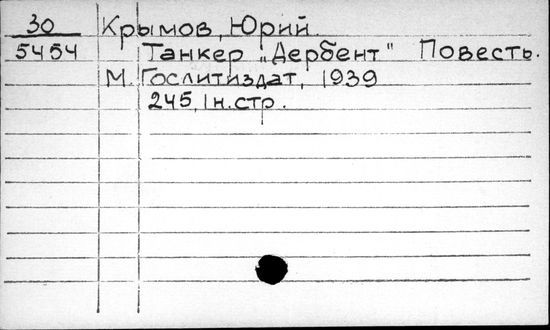 30 Крымов, Юрий.
5454 Танкер „Дербент" Повесть.
М. Гослитиздат, 1939
245, 1н.стр.